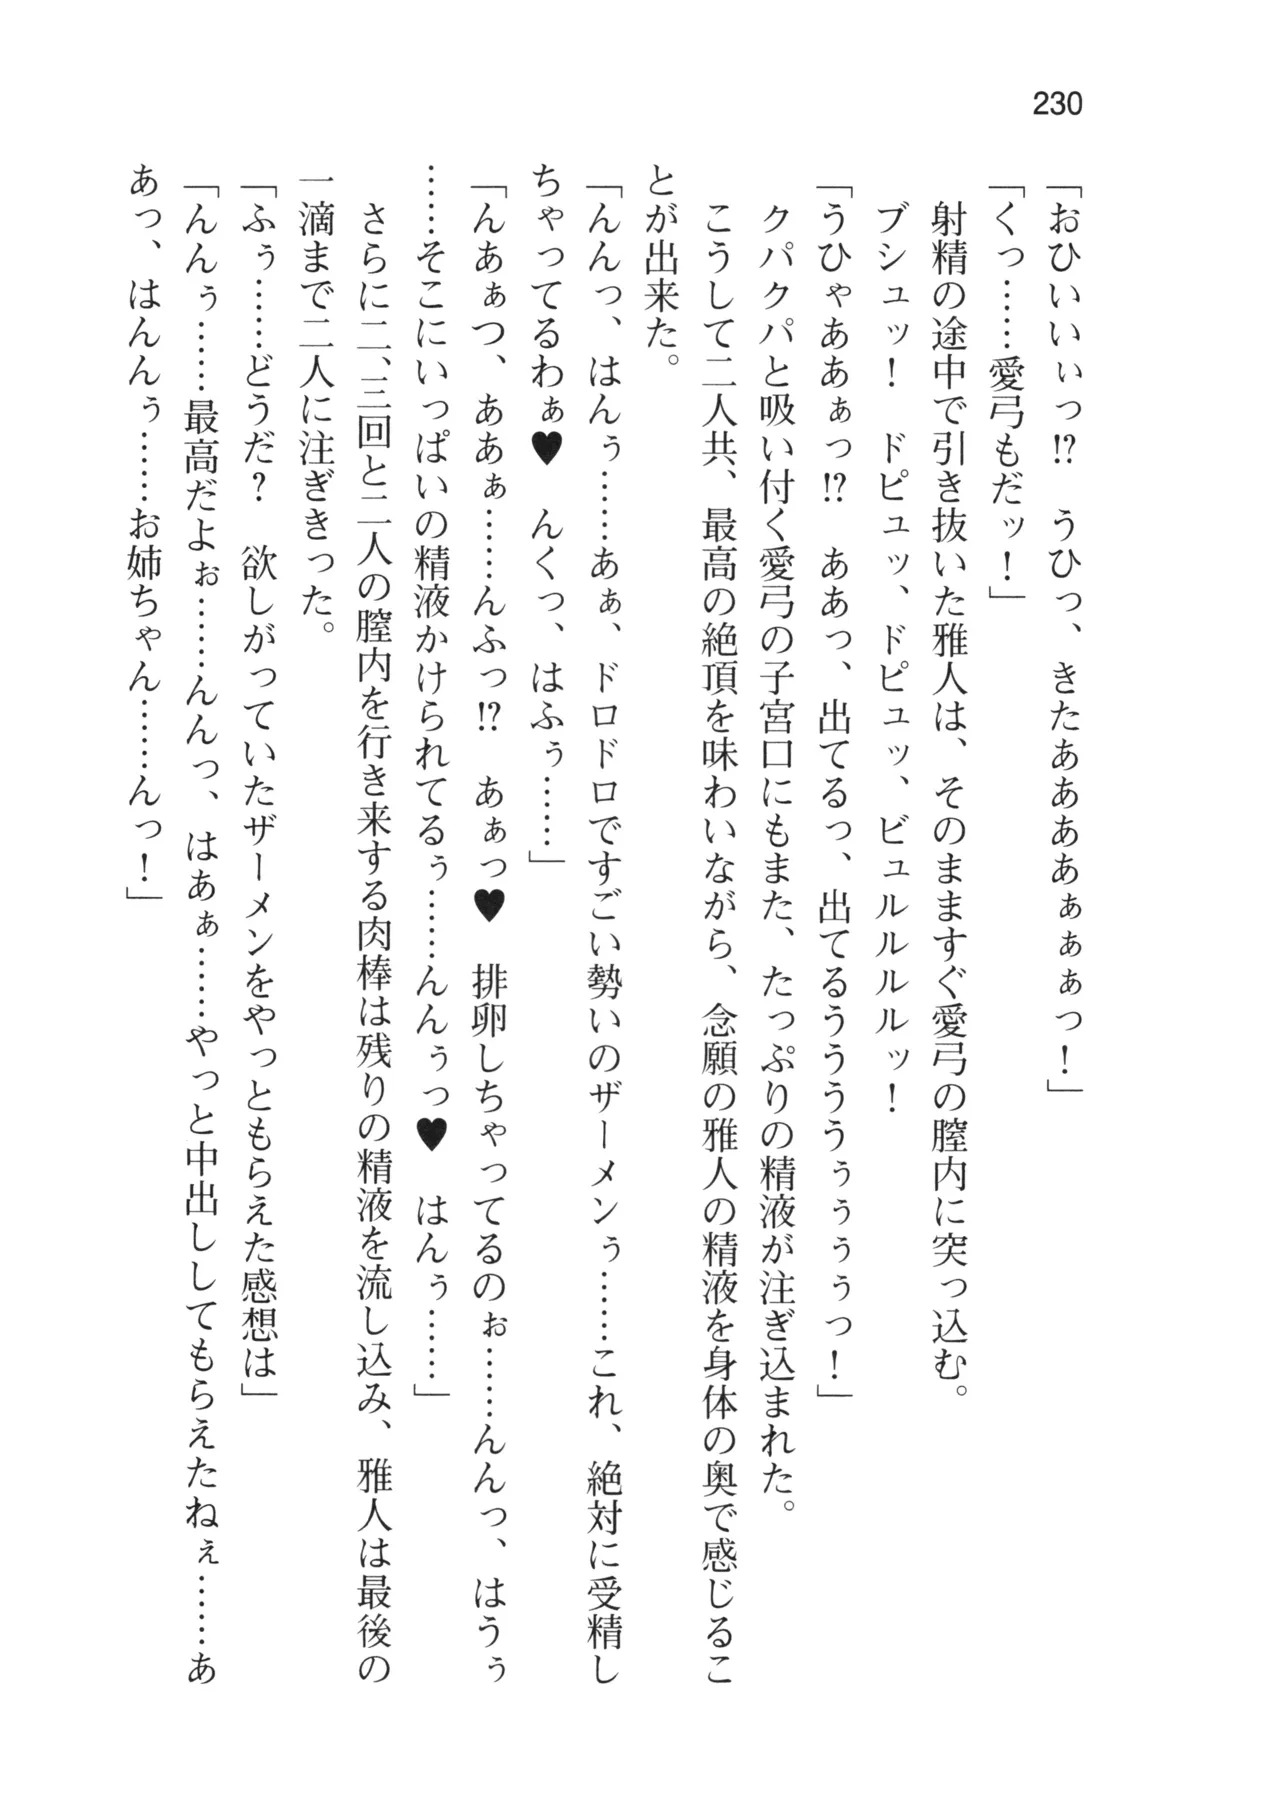 230
「おひいいぃっ!?　うひっ、きたああああぁぁぁっ！」
「くっ……愛弓もだッ！」
　射精の途中で引き抜いた雅人は、そのまますぐ愛弓の膣内に突っ込む。
　ブシュッ！　ドピュッ、ドピュッ、ビュルルルルッ！
「うひゃああぁっ!?　ああっ、出てるっ、出てるうううぅぅぅぅっ！」
　クパクパと吸い付く愛弓の子宮口にもまた、たっぷりの精液が注ぎ込まれた。
　こうして二人共、最高の絶頂を味わいながら、念願の雅人の精液を身体の奥で感じるこ
とが出来た。
「んんっ、はんぅ……あぁ、ドロドロですごい勢いのザーメンぅ……これ、絶対に受精し
ちゃってるわぁ♥　んくっ、はふぅ……」
「んあぁつ、ああぁ……んふっ!?　あぁっ♥　排卵しちゃってるのぉ……んんっ、はうぅ
……そこにいっぱいの精液かけられてるぅ……んんぅっ♥　はんぅ……」
　さらに二、三回と二人の膣内を行き来する肉棒は残りの精液を流し込み、雅人は最後の
一滴まで二人に注ぎきった。
「ふぅ……どうだ？　欲しがっていたザーメンをやっともらえた感想は」
「んんぅ……最高だよぉ……んんっ、はあぁ……やっと中出ししてもらえたねぇ……あ
あっ、はんんぅ……お姉ちゃん……んっ！」